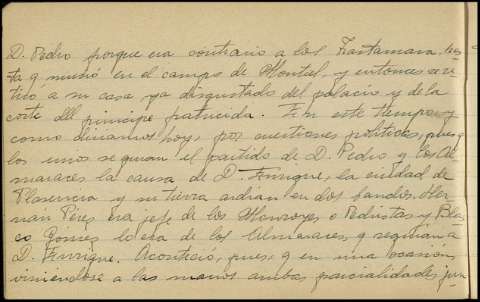 D. Pedro porque era contrario a los Trastamara has-
ta q murió en el campo de Montiel, y entonces se re-
tiró a su casa ya disgustado del palacio y de la
corte del principe fratricida. En este tiempo, y
como diriamos hoy, por cuestiones politicas, pues
los unos seguian el partido de D. Pedro y los Al-
maraces la causa de D. Enrique, la ciudad de
Plasencia y su tierra ardian en dos bandos. Her-
nan Pérez era jefe de los Monroyes, o Pedristas y Blas-
co Gómez lo era de los Almaraces, q seguian a
D. Enrique. Aconteció, pues, q en una ocasión,
viniéndose a las manos ambas parcialidades, jun-